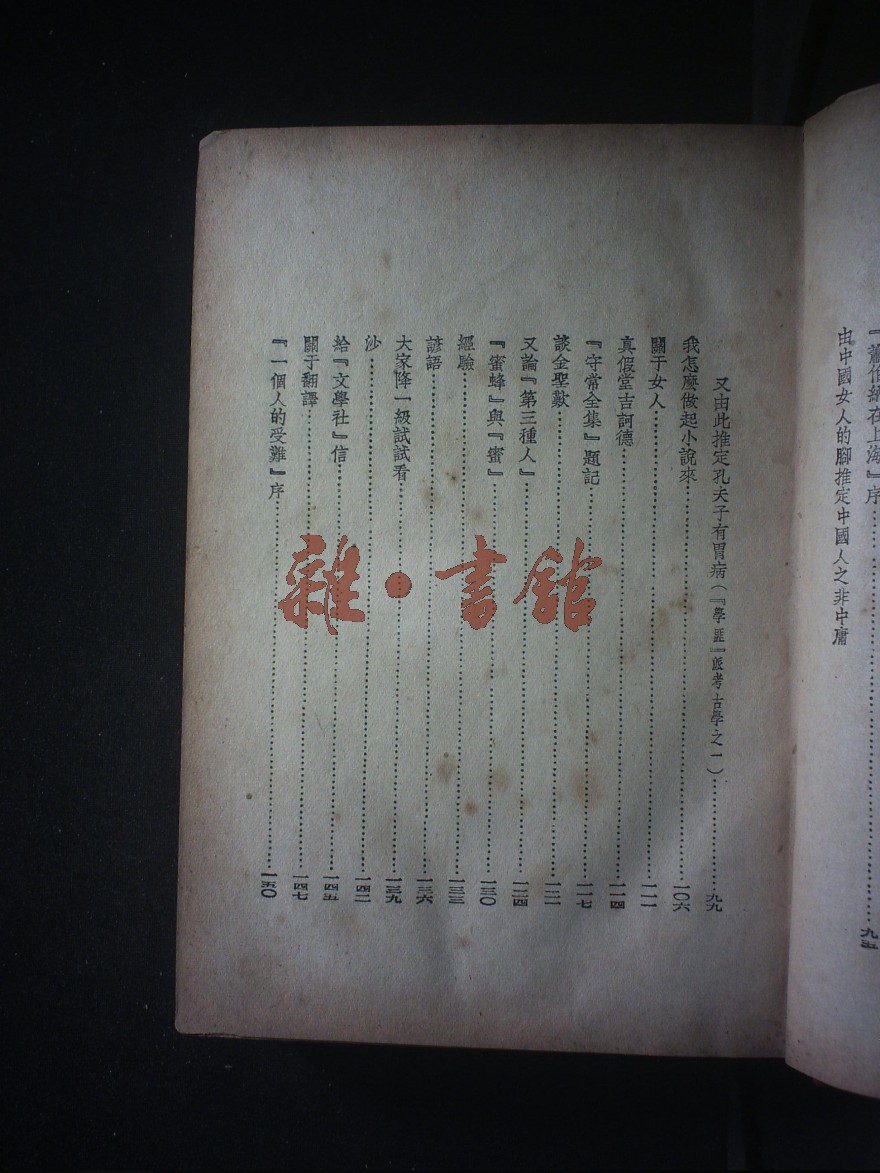 『蕭伯納在上海』序……九五
由中國女人的腳推定中國人之非中庸
又由此推定孔夫子有胃病（『學匪』派考古學之一）……九九
我怎麽做起小說來……一〇六
關于女人……一一一
真假堂吉訶德……一一四
『守常全集』題記……一一七
談金聖歎……一二一
又論『第三種人』……一二四
『蜜蜂』與『蜜』……一三〇
經驗……一三三
諺語……一三六
大家降一級試試看……一三九
沙……一四二
給『文學社』信……一四五
關于翻譯……一四七
『一個人的受難』序……一五〇
雜·書館